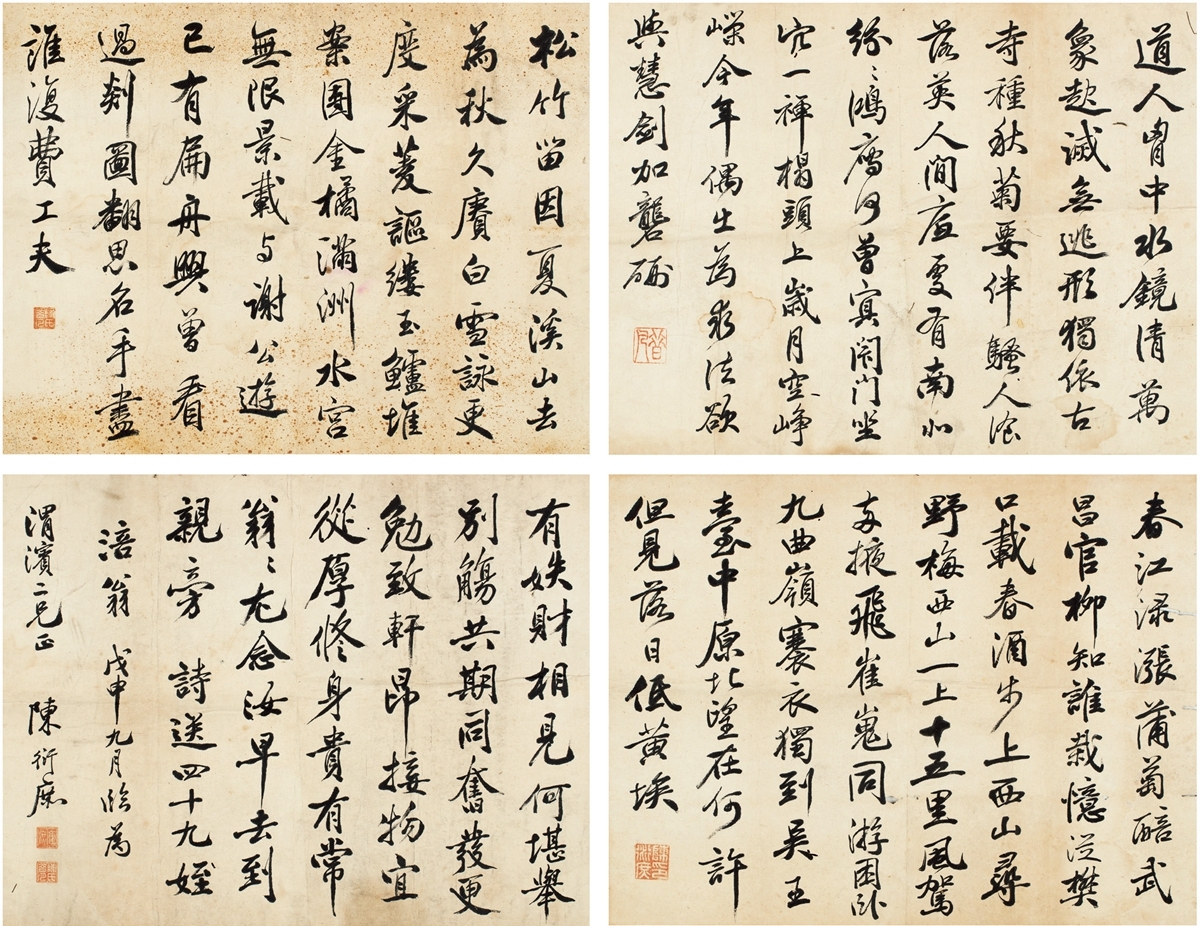 道人胷中水鏡清萬
象起滅無逃形獨依古
寺種秋菊要伴騷人飡
落英人間底處有南北
紛〻鴻鴈何曾冥閇門坐
穴一禪榻頭上歲月空崢
嶸今年偶出為求法欲
與慧劍加礱硎
松竹留因夏溪山去
為秋久賡白雪詠更
度采菱謳縷玉鱸堆
案團金橘滿洲水宮
無限景載与謝公遊
已有扁舟興曾看
過剡圖翻思名手盡
誰復費工夫
春江渌漲蒲萄醅武
昌官柳知誰栽憶從樊
口載春酒步上西山尋
野梅西山一上十五里風駕
兩掖飛崔嵬同游困卧
九曲嶺褰衣獨到吳王
臺中原北望在何許
但見落日低黃埃
有姪財相見何堪舉
別觴共期同奮發更
勉致軒昂接物宜
從厚修身貴有常
翁〻尤念汝早去到
親旁 詩送四十九姪
涪翁 戊申九月臨為
渭濱二兄正 陳衍庶